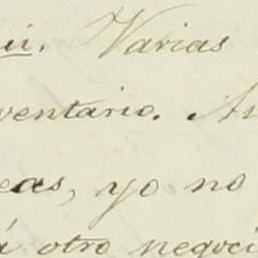 ui. Varias
ventario. Au
eas, yo no
á otro negoci